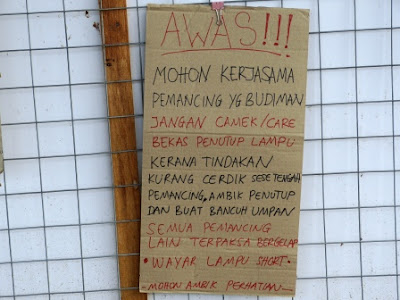 AWAS!!!
MOHON KERJASAMA
PEMANCING YG BUDIMAN
JANGAN CAMEK/CARE
BEKAS PENUTUP LAMPU
KERANA TINDAKAN
KURANG CERDIK SESETENGAH
PEMANCING, AMBIK PENUTUP
DAN BUAT BANCUH UMPAN
SEMUA PEMANCING
LAIN TERPAKSA BERGELAP
• WAYAR LAMPU SHORT •
- MOHON AMBIK PERHATIAN -